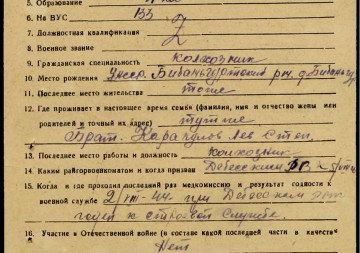 5. Образование
6. На ВУС 133
7. Должностная квалификация
8. Военное звание
9. Гражданская специальность колхозник
10. Место рождения
11. Последнее место жительства тоже
12. Где проживает в настоящее время семья (фамилия, имя и отчество жены или
родителей и точный их адрес)
Брат. Каракулов Лев Степ.
13. Последнее место работы и должность колхозник
14. Каким райгорвоенкоматом и когда призван Дебесским
15. Когда и где проходил последний раз медкомиссию и результат годности к
военной службе 2/VIII-44 при Дебесском
годен к строевой службе.
16. Участие в Отечественной войне (в составе какой последней части в качестве
Нет